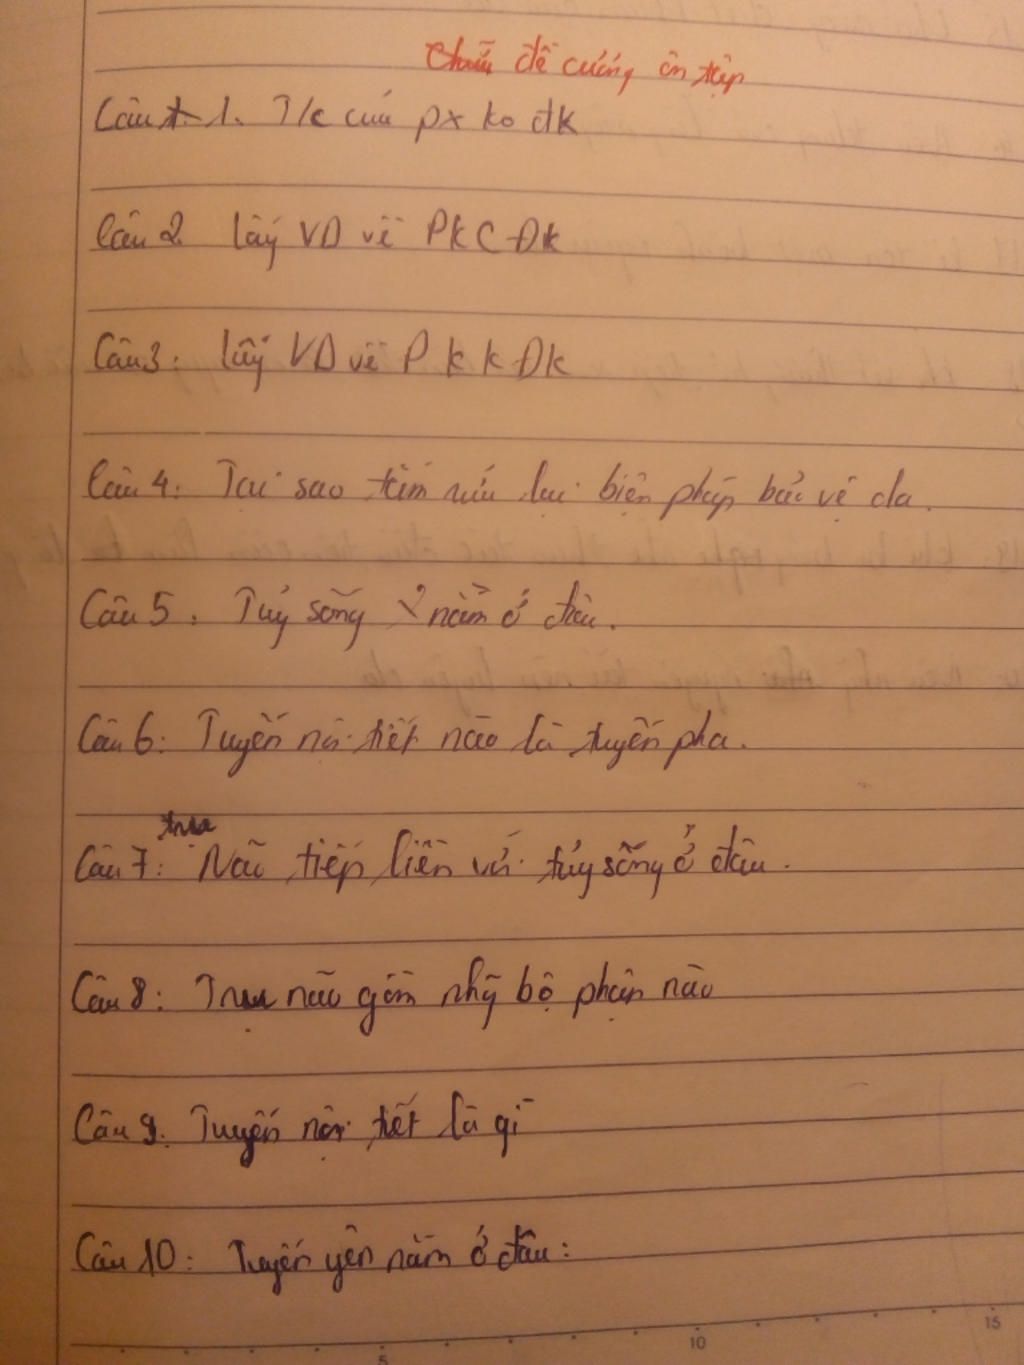 Chữa đề cương ôn tập
Câu 1. T/c của px ko đk
Câu 2 Lấy VD về PXCĐK
Câu 3: Lấy VD về PXKĐK
Câu 4: Tại sao lại biện pháp bảo vệ da.
Câu 5. Tủy sống nằm ở đâu.
Câu 6: Tuyến nội tiết nào là tuyến pha.
trung
Câu 7: Não tiếp liền với tủy sống ở đâu.
Câu 8: Trụ não gồm nhữ bộ phận nào
Câu 9. Tuyến nội tiết là gì
Câu 10: Tuyến yên nằm ở đâu:
5 10 15